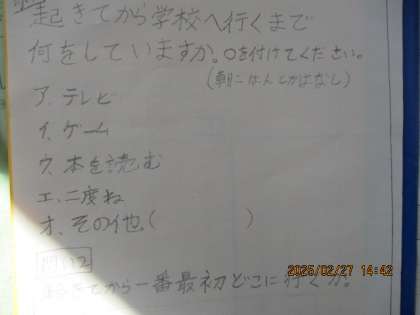 起きてから学校へ行くまで
何をしていますか。○を付けてください。
(朝ごはんとかはなし)
ア.テレビ
イ.ゲーム
ウ.本を読む
エ.二度ね
オ.その他( )
問い2
起きてから一番最初どこに行くか。
2025/02/27 14:42